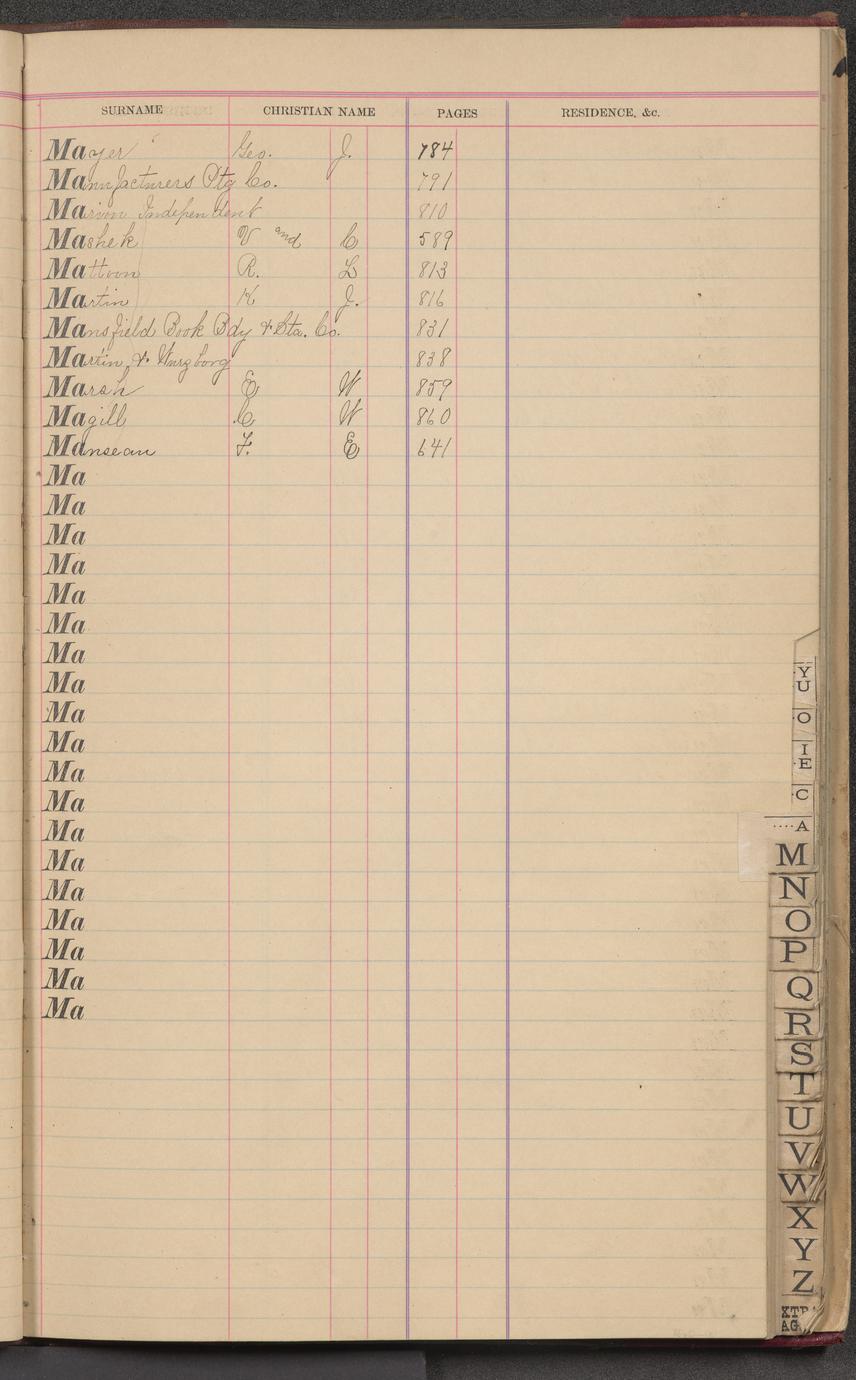 SURNAME CHRISTIAN NAME PAGES RESIDENCE, &c.
Mayer Geo. J. 784
Manufacturers Ptg Co. 791
Marion Independent 810
Mashek V and C 589
Mattoon R. L 813
Martin K J. 816
Mansfield Book Bdy & Sta. Co. 831
Martin & Wurzborg 838
Marsh E W 859
Magill C W 860
Manseau F. E 641
Ma
Ma
Ma
Ma
Ma
Ma
Ma
Ma
Ma
Ma
Ma
Ma
Ma
Ma
Ma
Ma
Ma
Ma
Ma
Y
U
O
I
E
C
A
M
N
O
P
Q
R
S
T
U
V
W
X
Y
Z